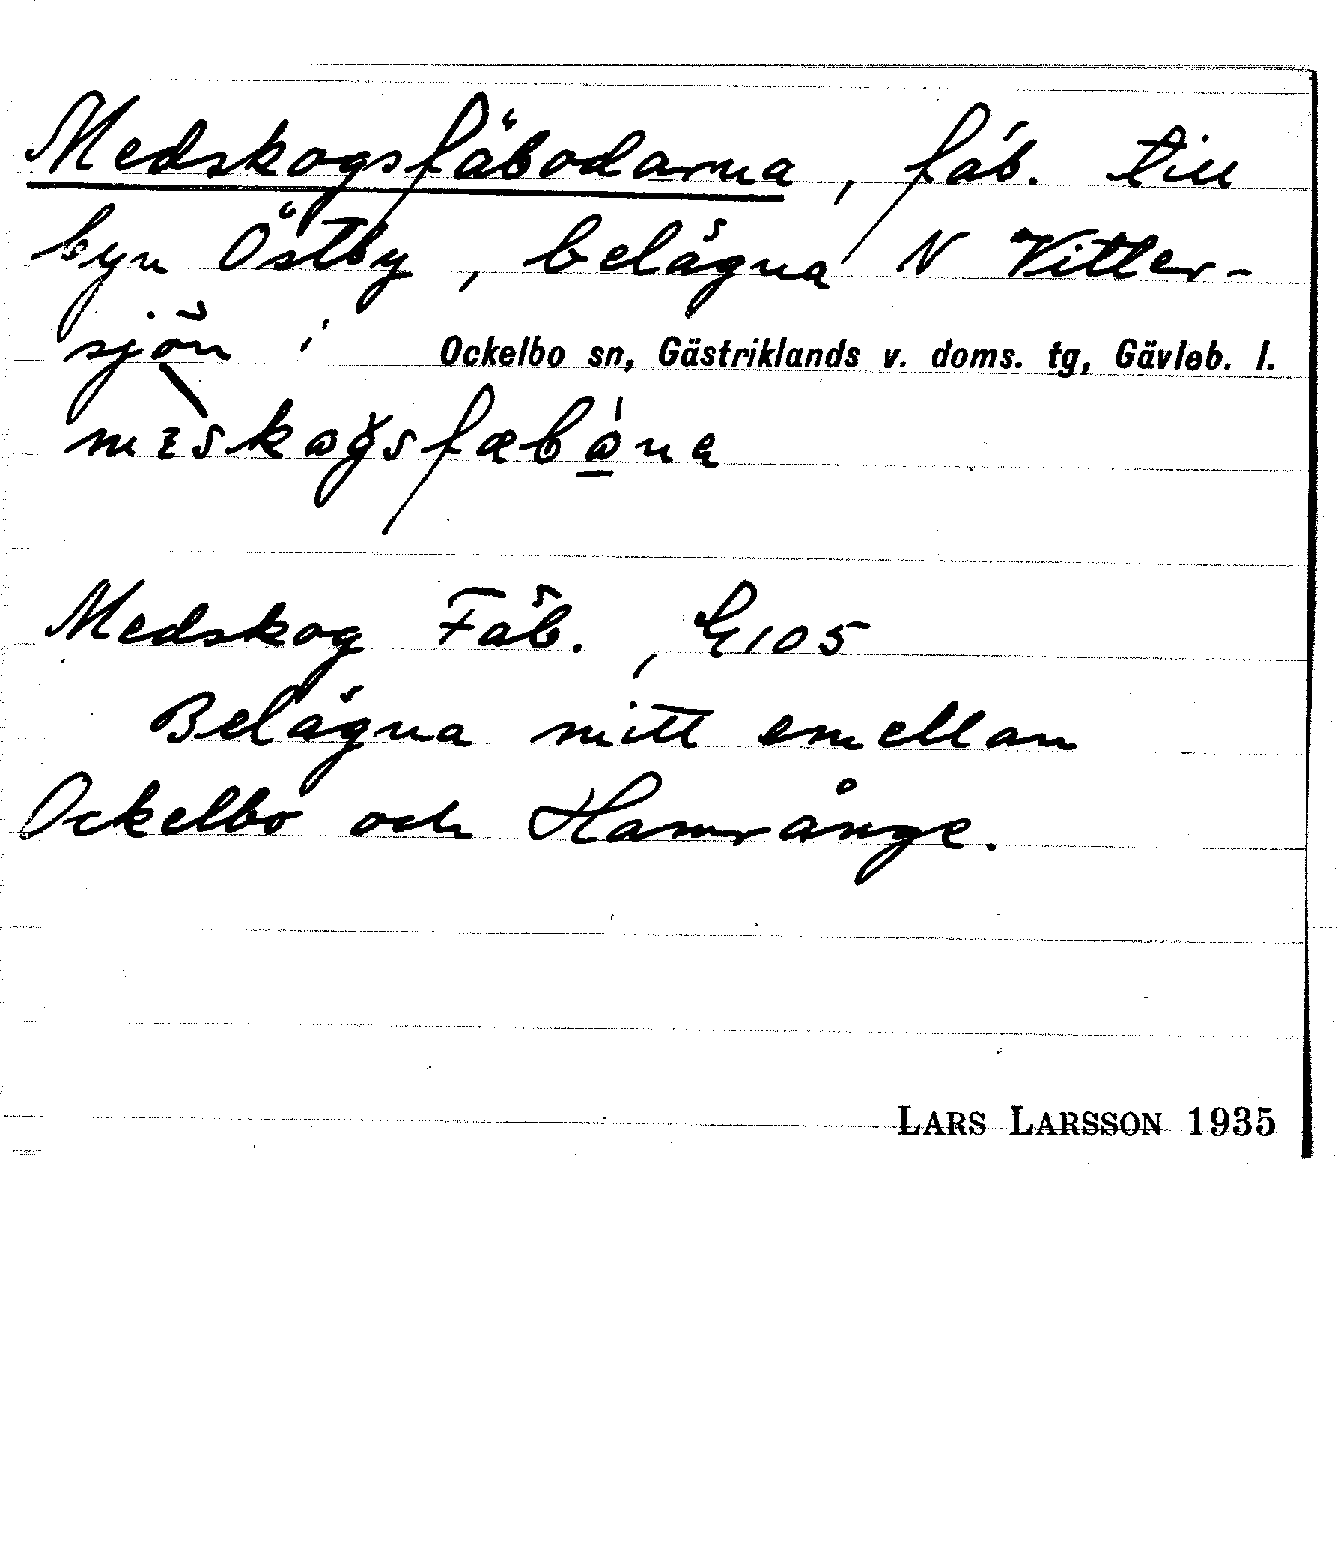 Medskogsfäbodarna, fäb. till
byn Östby, belägna N Vittler-
sjön i Ockelbo sn, Gästriklands v. doms. tg, Gävleb. l.
Medskog Fäb., G105
Belägna mitt emellan
Ockelbo och Hamrånge.
LARS LARSSON 1935